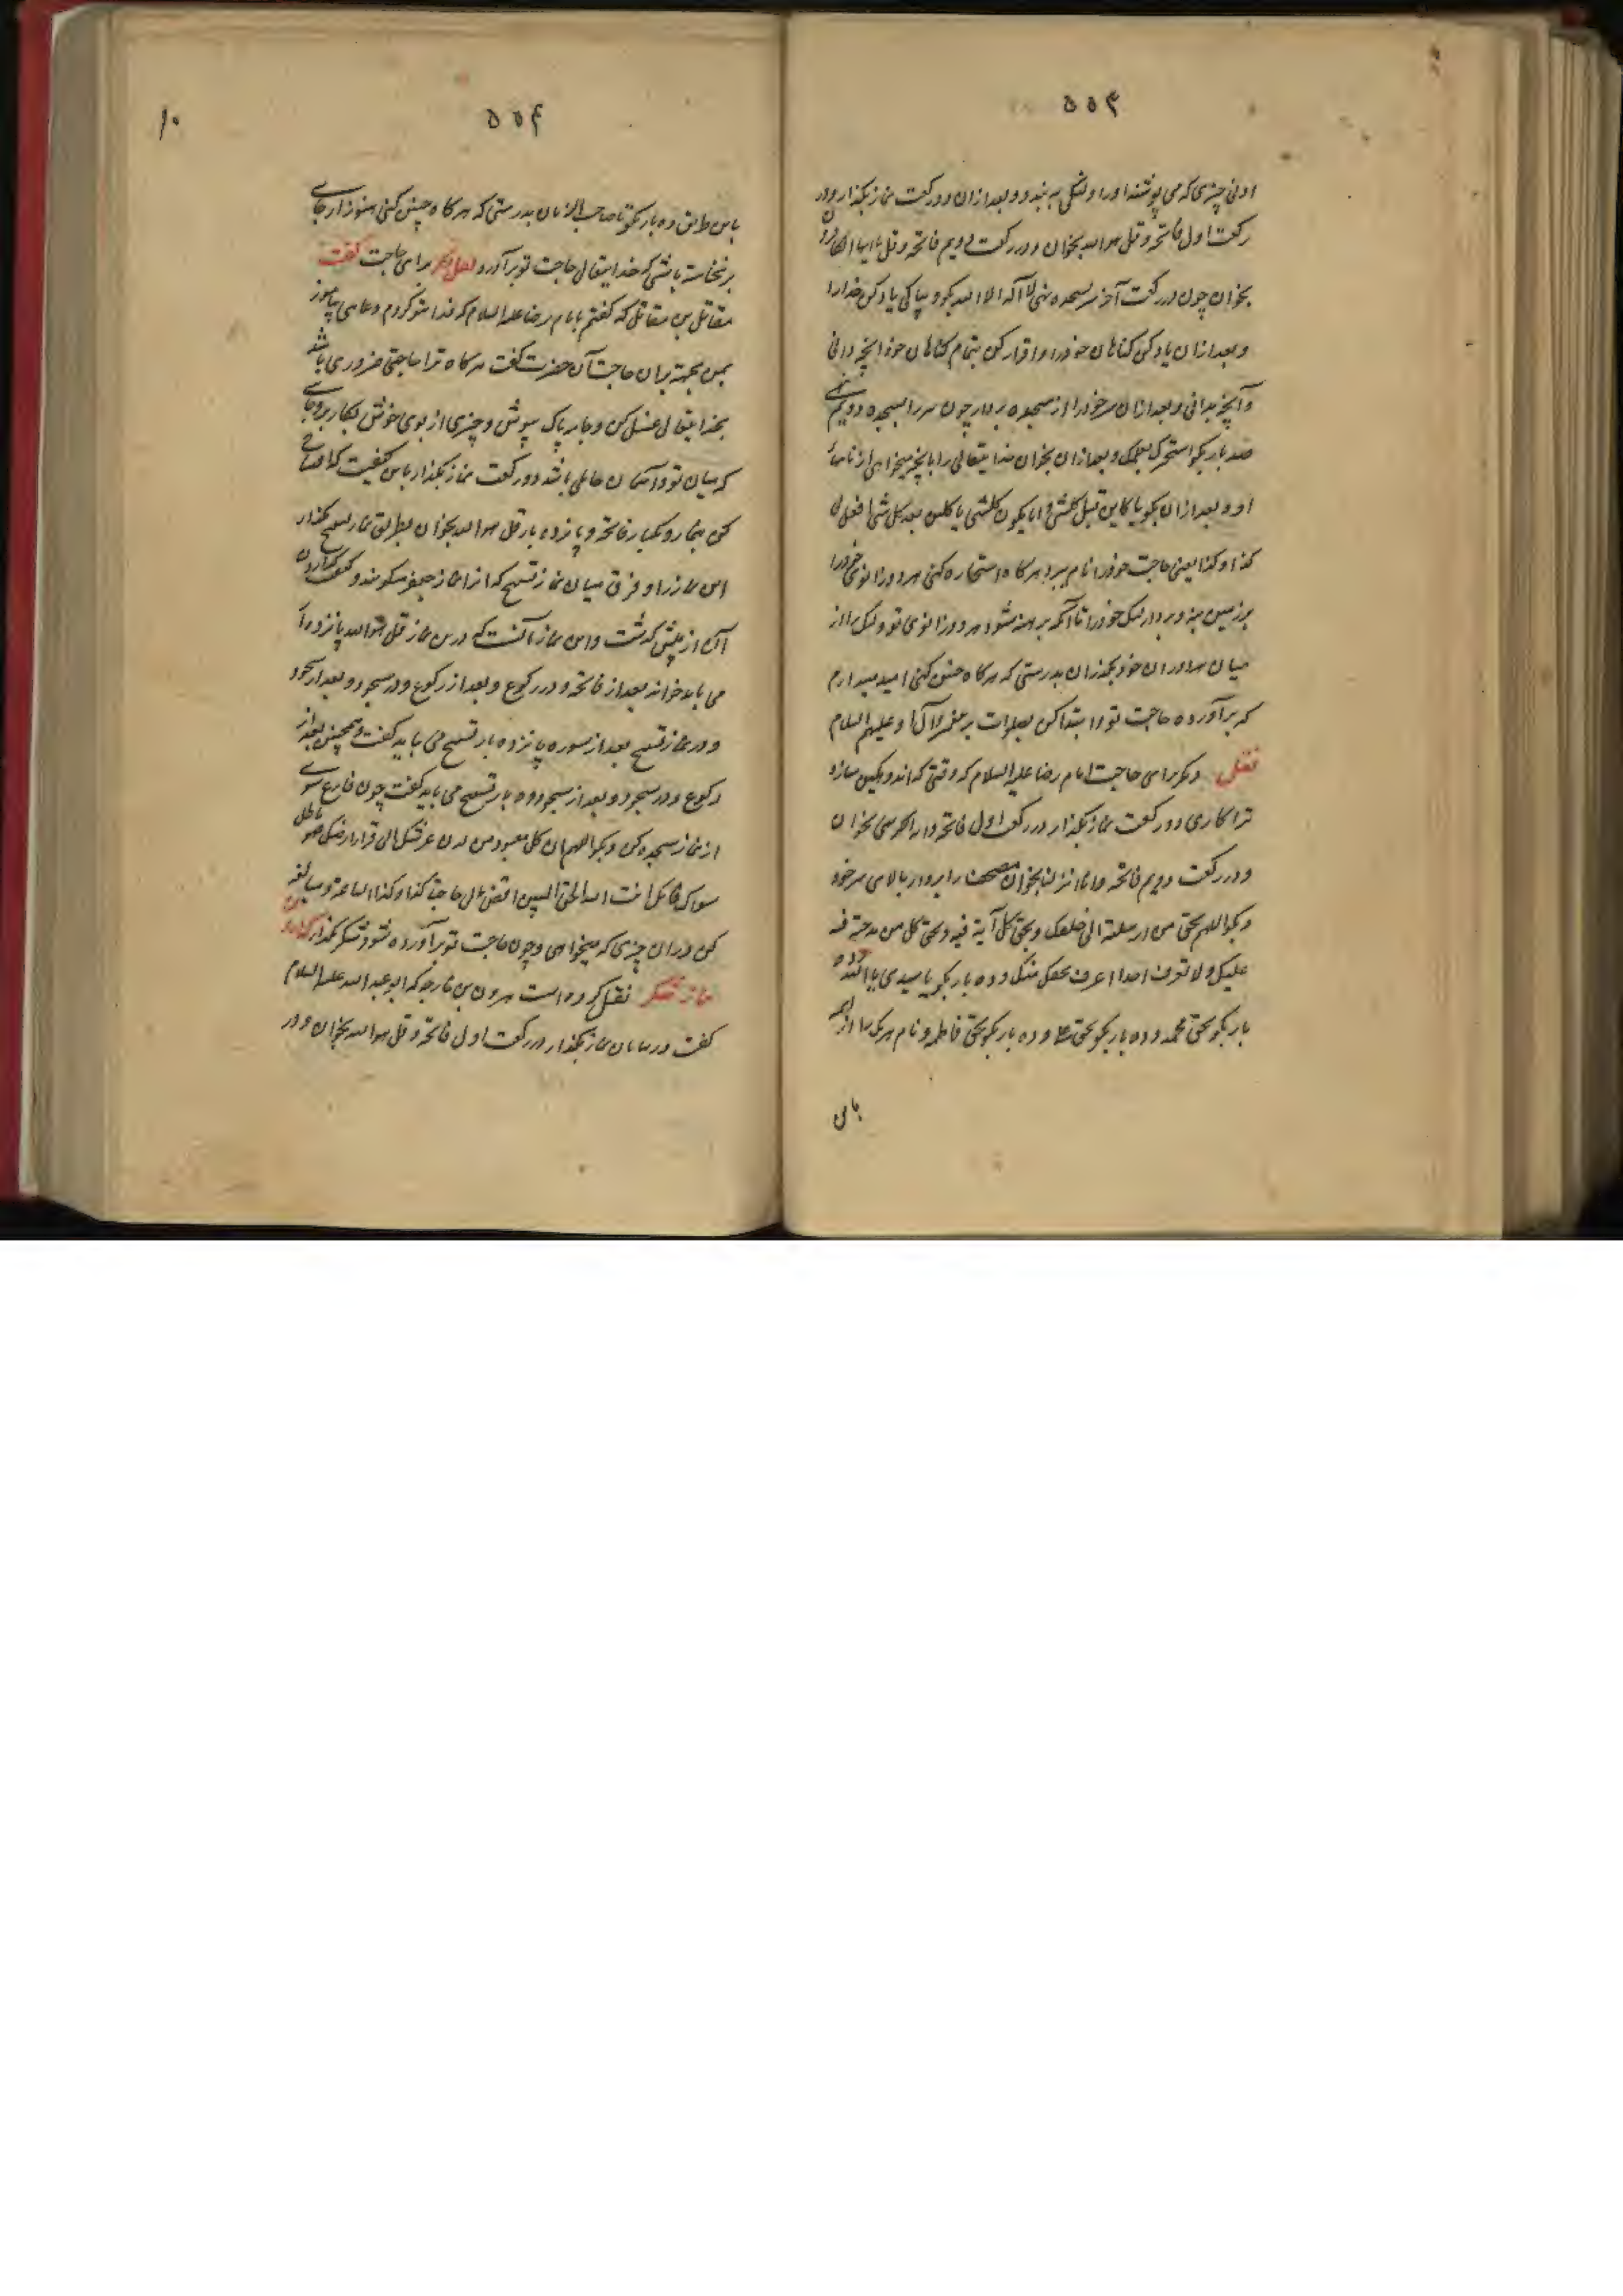 ۵۵۳
ادنی چیزی که می پوشند او را و لنگی به بندد و بعد ازان دو رکعت نماز بگذار و در
رکعت اول فاتحه و قل هو الله بخوان و در رکعت دویم فاتحه و قل یا ایها الکافرون
بخوان چون در رکعت آخر سر بسجده نهی لا آله الا الله بگو و بپاکی یاد کن خدا را
و بعد ازان یاد کن گناهان خود را و اقرار کن بتمام گناهان خود آنچه دانی
و آنچه ندانی و بعد ازان سر خود را از سجده بردار چون سر را بسجده دویم نهی
صد بار بگو استخیرک بعلمک و بعد ازان بخوان خدایتعالی را بآنچه میخواهی از نامهاء
او و بعد ازان بگو یا کاین قبل کلشی و یا مکون کلشی یا کاین بعد کل شی افعل لی
کذا و کذا یعنی حاجت خود را نام ببرد هر کاه استخاره کنی هر دو زانوی خود را
بر زمین بنه و بردار لنگ خود را تا آنکه برهنه شود هر دو زانوی تو و لنک را از
میان سراوران خود بگذران بدرستی که هر کاه چنین کنی امید میدارم
که برآورده حاجت تو و ابتدا کن بصلوات بر پیغمبر و آل او علیهم السلام
نقل دیگر برای حاجت امام رضا علیه السلام که وقتی که اندوهگین سازد
ترا کاری دو رکعت نماز بگذار در رکعت اول فاتحه و آیة الکرسی بخوان
و در رکعت دویم فاتحه و انا انزلنا بخوان مصحف را بردار بالای سر خود
و بگو اللهم بحق من ارسلته الی خلقک و بحق کل آیة فیه و بحق کل من مدحته فیه
علیک و لا نعرف احدا اعرف بحقک منک و ده بار بگو یا سیدی یا الله و ده
بار بگو بحق محمد و ده بار بگو بحق علی و ده بار بگو بحق فاطمه و نام هر یک را از ائمه
باین
۵۵۴
۱۰
باین طریق ده بار بگو تا صاحب الزمان بدرستی که هر کاه چنین کنی هنوز از جای
برنخاسته باشی که خدایتعالی حاجت تو برآورد نقل دیگر برای حاجت گفت
مقاتل بن مقاتل که گفتم بامام رضا علیه السلام که فدای تو کردم دعاهی بیاموز
بمن بجهة برآمدن حاجت آن حضرت گفت هر کاه ترا حاجتی ضروری باشد
بخدایتعالی غسل کن و جامه پاک بپوش و چیزی از بوی خوش بکار برو جای
که میان تو و آسمان حایلی باشد دو رکعت نماز بگذار باین کیفیت که افتتاح
کنی بنماز و یکبار فاتحه و پانزده بار قل هو الله بخوان بطریق نماز تسبیح بگذار
این نماز را و فرق میان نماز تسبیح که آنرا نماز جعفر میگویند و کیفیت گذاردن
آن از پیش گذشت و این نماز آنست که درین نماز قل هو الله پانزده بار
می باید خواند بعد از فاتحه و در رکوع و بعد از رکوع و در سجود و بعد از سجود
و در نماز تسبیح بعد از سوره پانزده بار تسبیح می باید گفت و همچنین بعد از
رکوع و در سجود و بعد از سجود ده بار تسبیح می باید گفت چون فارغ شوی
از نماز سجده کن و بگو اللهم ان کل معبود من لدن عرشک الی قرار ارضک فهو باطل
سواک فانک انت الله الحق المبین اقض لی حاجة کذا و کذا الساعة و مبالغه
کن دران چیزی که میخواهی و چون حاجت تو برآورده شود شکر بگذار
نماز شکر نقل کرده است هرون بن خارجه که ابو عبد الله علیه السلام
گفت نماز بگذار در رکعت اول فاتحه و قل هو الله بخوان و در